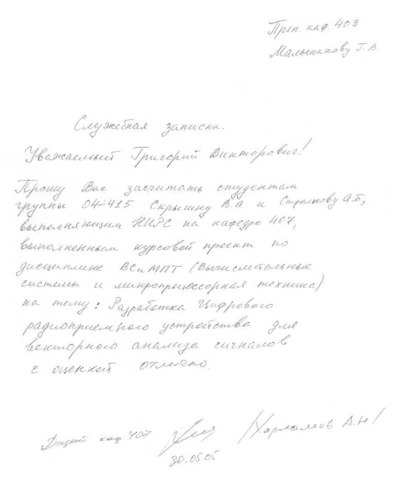 Преп. каф. 403
Малышакову Г.В
Служебная записка.
Уважаемый Григорий Викторович!
Прошу Вас засчитать студентам
группы 04-415 Скрышину В.А и Стрелкову А.Б,
выполняющим НИРС на кафедре 407,
выполненный курсовой проект по
дисциплине ВСиМПТ (Вычислительные
системы и микропроцессорная техника)
на тему: Разработка Цифрового
радиоприемного устройства для
векторного анализа сигналов
с оценкой отлично.
каф 407 /Харламов А.Н/
30.05.05